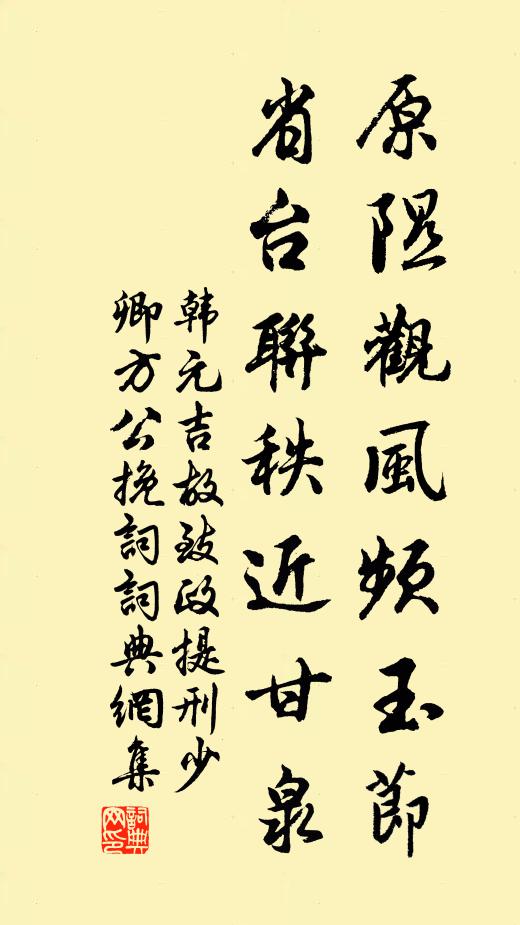 原隰觀風頻玉節
省台聯秩近甘泉
韩元吉故致政提刑少
卿方公挽詞詞典網集
詞典
网印